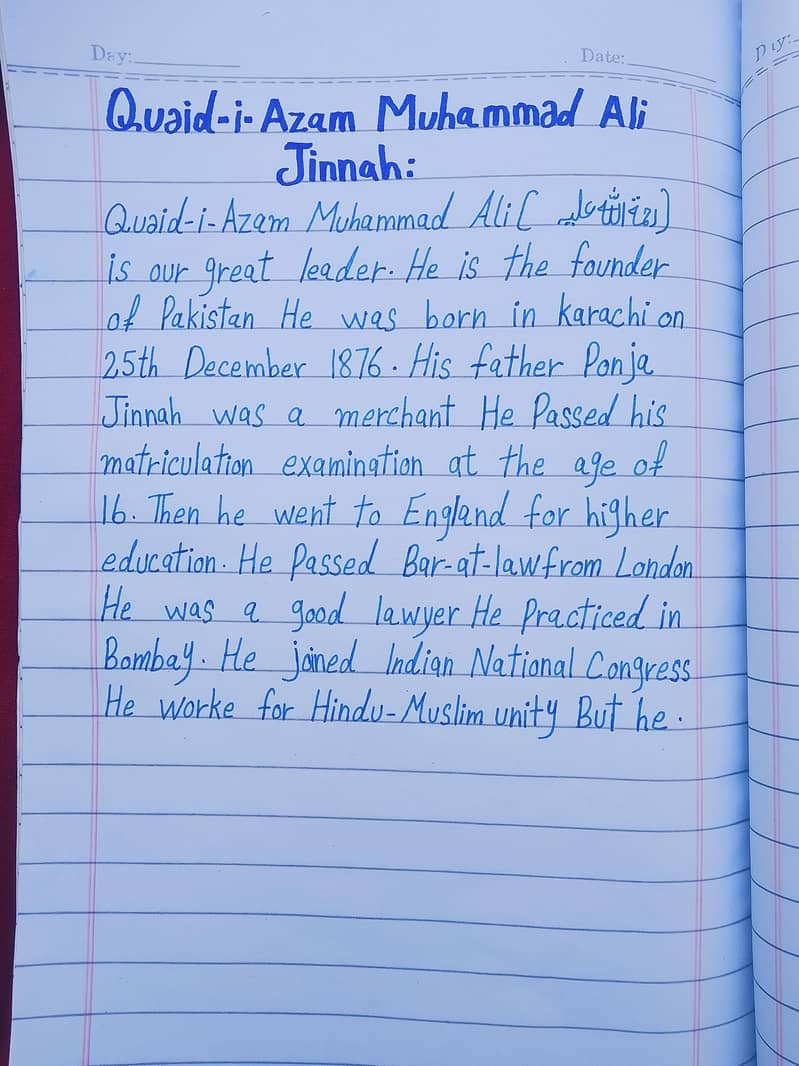 Day:
Date:
Day:
Quaid-i-Azam Muhammad Ali
Jinnah:
Quaid-i-Azam Muhammad Ali [رحمۃ اللہ علیہ]
is our great leader. He is the founder
of Pakistan He was born in karachi on
25th December 1876. His father Ponja
Jinnah was a merchant He Passed his
matriculation examination at the age of
16. Then he went to England for higher
education. He Passed Bar-at-law from London
He was a good lawyer He Practiced in
Bombay. He joined Indian National Congress
He worke for Hindu-Muslim unity But he.